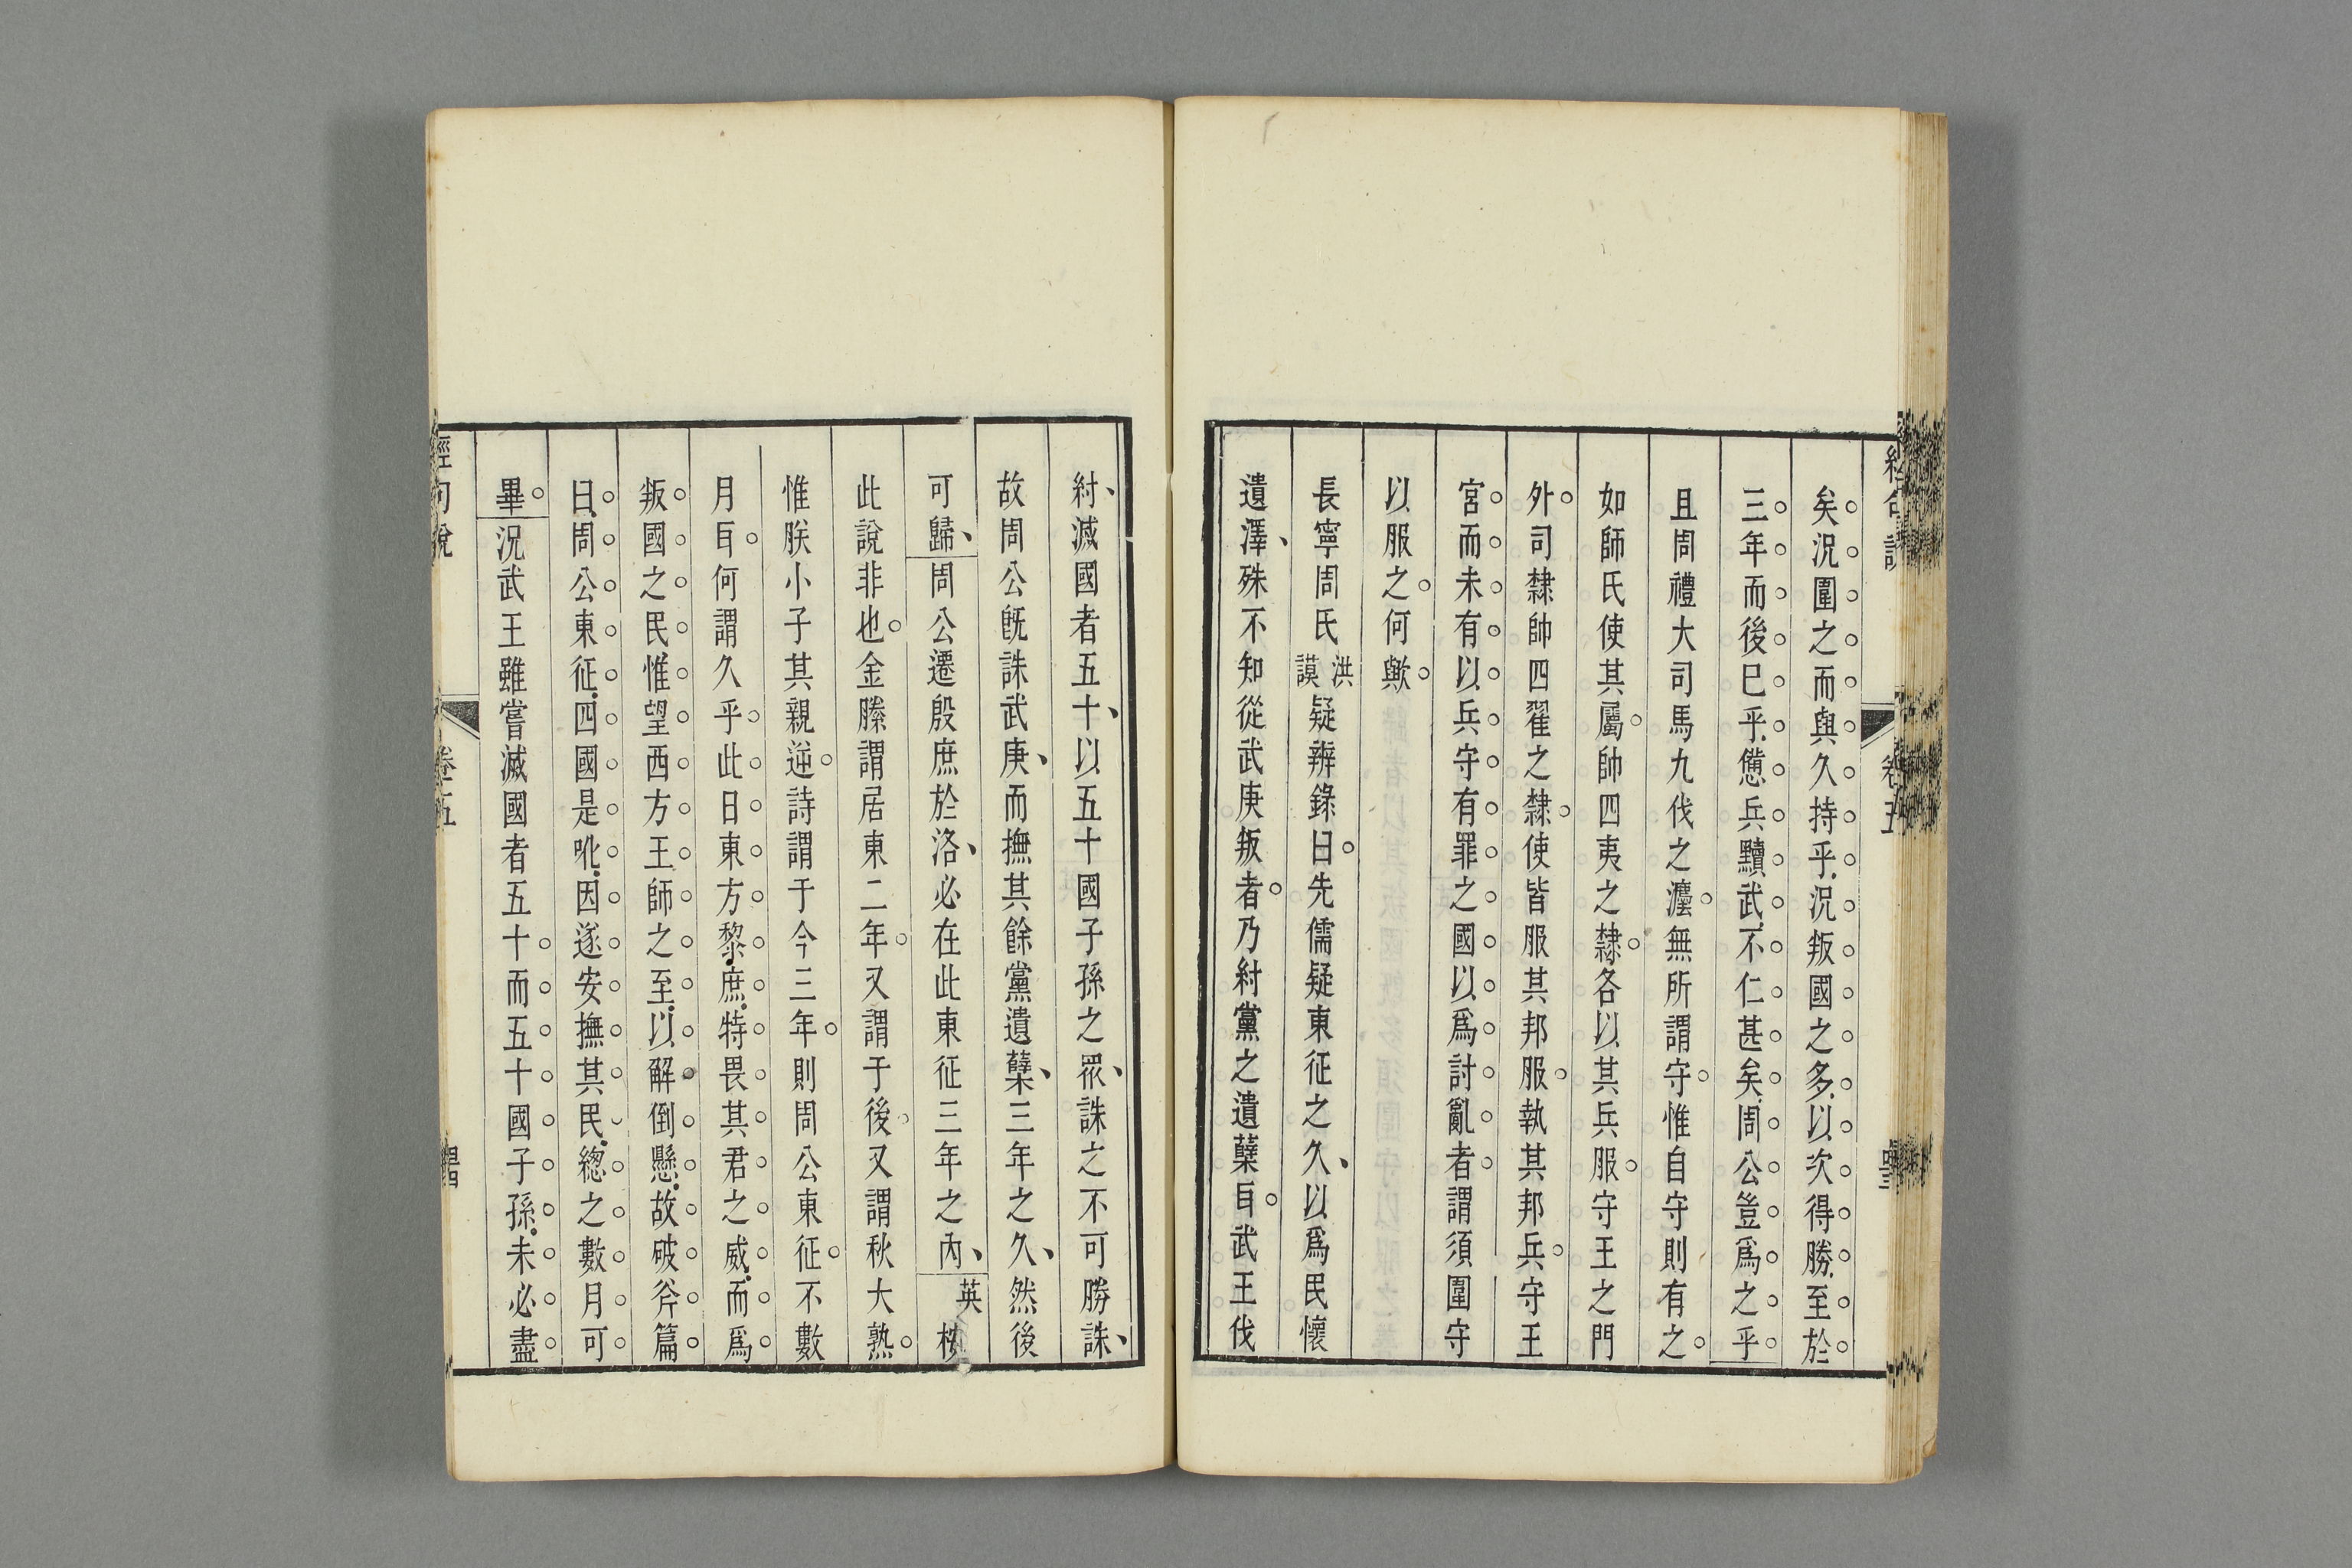 矣況圍之而與久持乎況叛國之多以次得勝至於
三年而後已乎憊兵黷武不仁甚矣周公豈爲之乎
且周禮大司馬九伐之灋無所謂守惟自守則有之
如師氏使其屬帥四夷之隸各以其兵服守王之門
外司隸帥四翟之隸使皆服其邦服執其邦兵守王
宮而未有以兵守有罪之國以爲討亂者謂須圍守
以服之何歟
長寧周氏洪謨疑辨錄曰先儒疑東征之久以爲民懷
遺澤殊不知從武庚叛者乃紂黨之遺蘖㠯武王伐
紂滅國者五十以五十國子孫之眾誅之不可勝誅
故周公既誅武庚而撫其餘黨遺蘖三年之久然後
可歸周公遷殷庶於洛必在此東征三年之內英
此說非也金縢謂居東二年又謂于後又謂秋大熟
惟朕小子其親逆詩謂于今三年則周公東征不數
月㠯何謂久乎此日東方黎庶特畏其君之威而爲
叛國之民惟望西方王師之至以解倒懸故破斧篇
曰周公東征四國是吪因遂安撫其民總之數月可
畢況武王雖嘗滅國者五十而五十國子孫未必盡
經句說
卷五